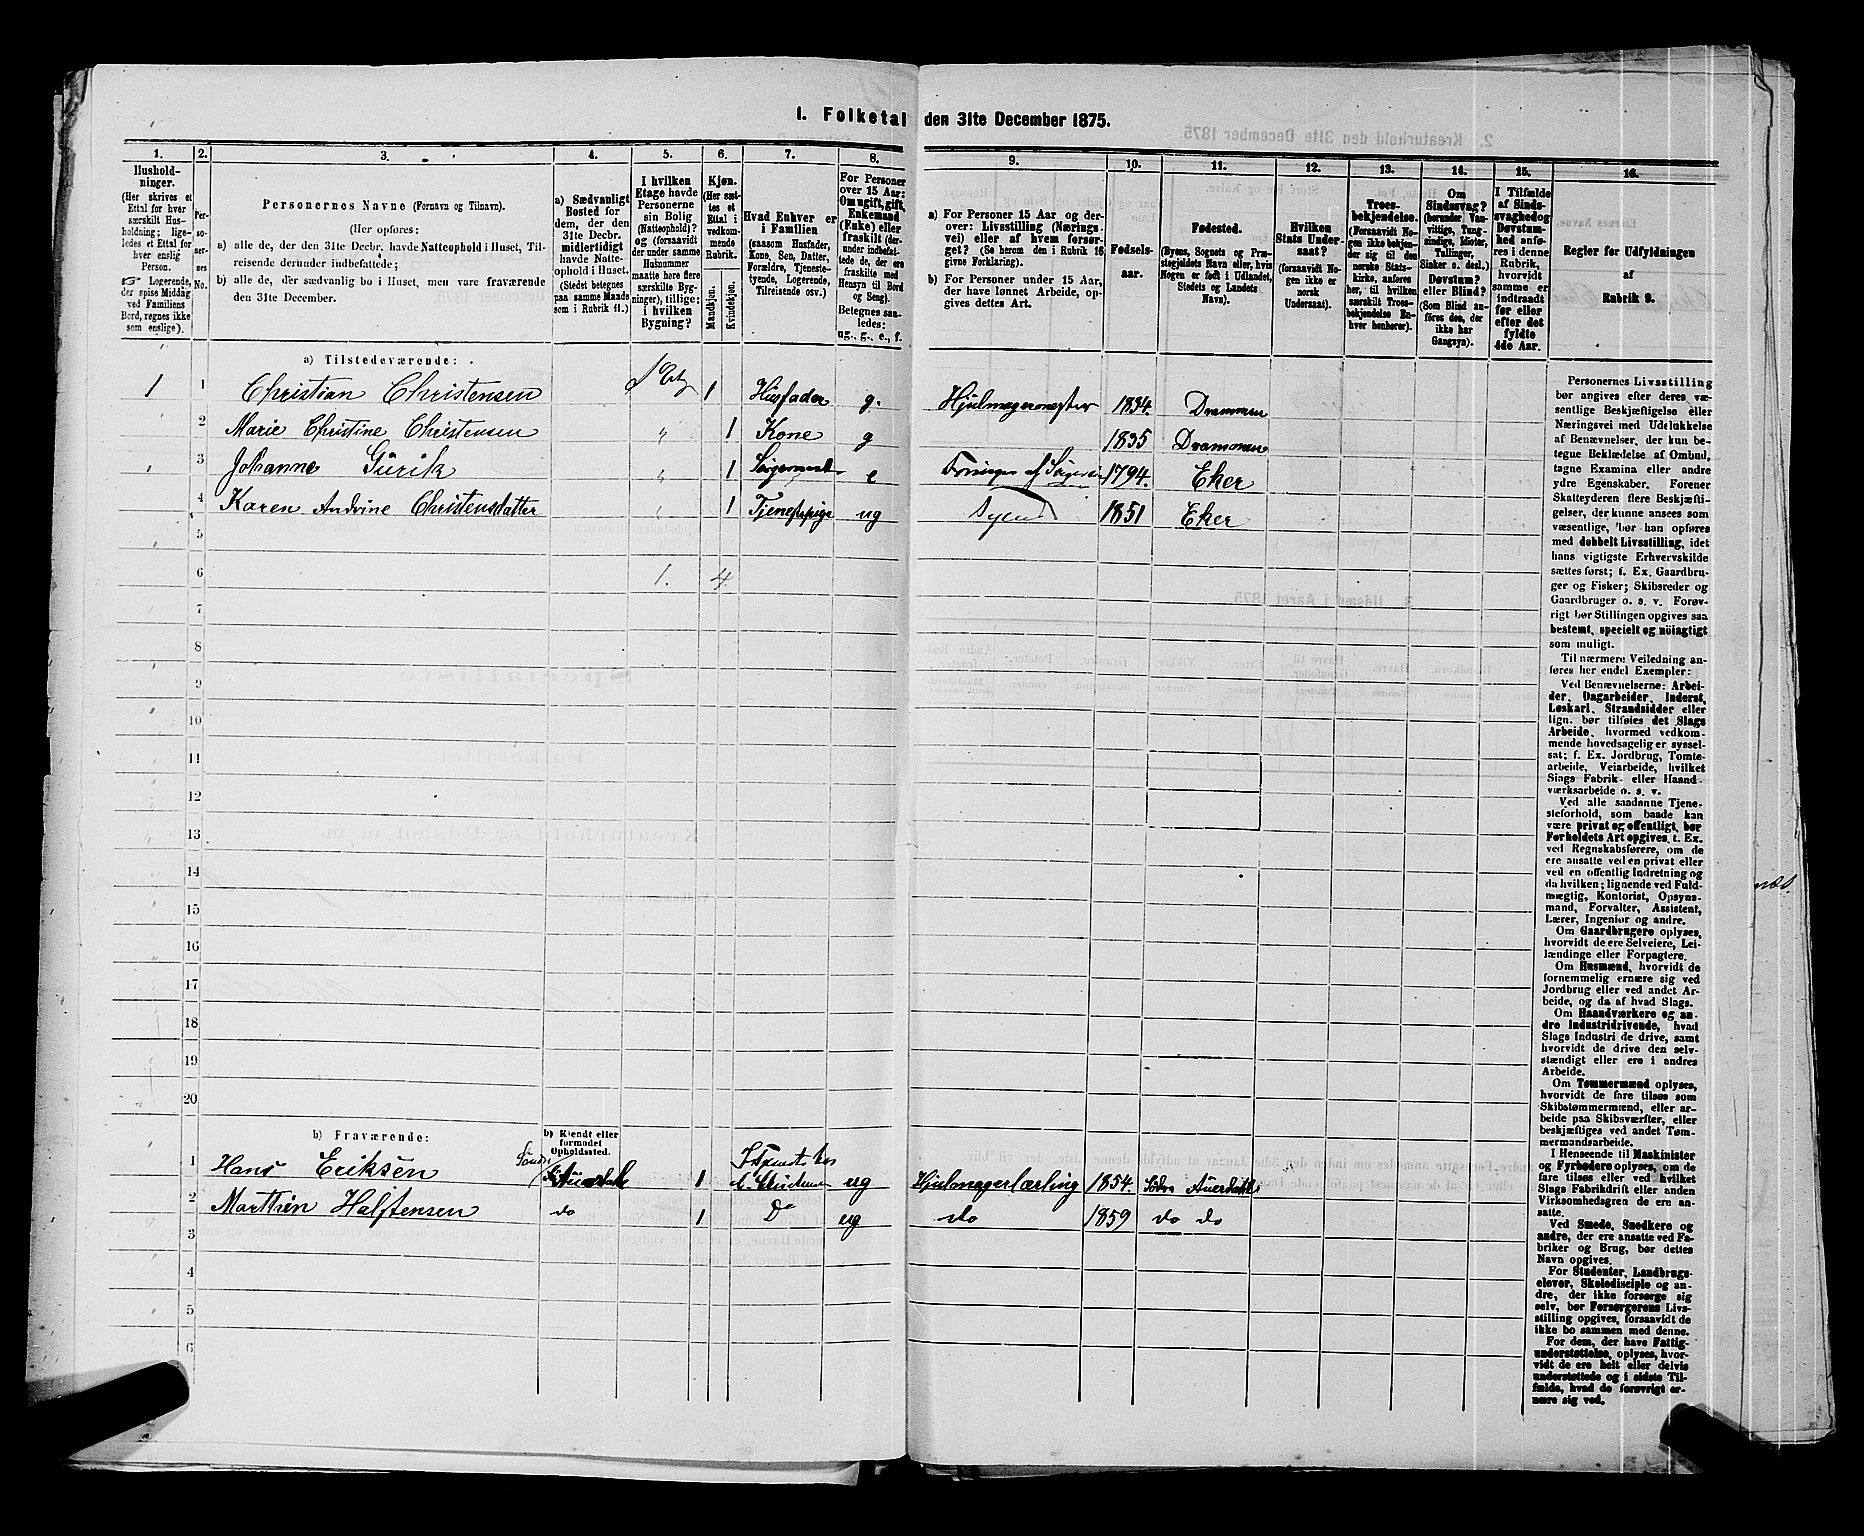 1. Folketal den 31te December 1875.
1. 2. 3. 4. 5. 6. 7. 8. 9. 10. 11. 12. 13. 14. 15. 16.
Hushold-
ninger.
(Her skrives et
Ettal for hver
særskilt Hus-
holdning; lige-
ledes et Ettal for
hver enslig
Person.
☞ Logerende,
der spise Middag
ved Familiens
Bord, regnes ikke
som enslige).
Per-
so-
ner-
nes
No.
Personernes Navne (Fornavn og Tilnavn).
(Her opføres:
a) alle de, der den 31te Decbr. havde Natteophold i Huset, Til-
reisende derunder indbefattede;
b) alle de, der sædvanlig bo i Huset, men vare fraværende
den 31te December.
a) Sædvanligt
Bosted for
dem, der den
31te Decbr.
midlertidigt
havde Natte-
ophold i Huset.
(Stedet betegnes
paa samme Maade
som i Rubrik 11.)
I hvilken
Etage havde
Personerne
sin Bolig
(Natteophold)?
og (forsaavidt
der under
samme
Husnummer
maatte høre flere
særskilte Byg-
ninger), tillige:
i hvilken
Bygning?
Kjøn.
(Her sæt-
tes et
Ettal i
vedkom-
mende
Rubrik.
Mandkjøn.
Kvindekjøn.
Hvad Enhver er
i Familien
(saasom Husfader,
Kone, Søn, Datter,
Forældre, Tjeneste-
tyende, Logerende,
Tilreisende osv.)
For Personer
over 15 Aar:
Om ugift, gift,
Enkemand
(Enke) eller
fraskilt (der-
under indbefat-
tede de, der ere
fraskilte med
Hensyn til Bord
og Seng).
Betegnes saa-
ledes:
ug., g., e., f.
a) For Personer 15 Aar og der-
over: Livsstilling (Nærings-
vei) eller af hvem forsør-
get? (Se herom den i Rubrik 16
givne Forklaring).
b) For Personer under 15 Aar,
der have lønnet Arbeide, op-
gives dettes Art.
Fødsels-
aar.
Fødested.
(Byens, Sognets og Præ-
stegjeldets Navn eller, hvis
Nogen er født i Udlandet,
Stedets og Landets
Navn).
Hvilken
Stats Under-
saat?
(forsaavidt No-
gen ikke er
norsk
Undersaat).
Troes-
bekjendelse.
(Forsaavidt No-
gen ikke bekjen-
der sig til den
norske Stats-
kirke, anføres
her, til hvilken
særskilt Troes-
bekjendelse En-
hver henhører).
Om
Sindssvag?
(herunder Van-
vittige, Tung-
sindige, Idioter,
Tullinger,
Sinker o. desl.)
Døvstum?
eller Blind?
(Som Blind an-
føres den, der
ikke har
Gangsyn).
I Tilfælde
af Sinds-
svaghed og
Døvstum-
hed anfø-
res i denne
Rubrik,
hvorvidt
samme er
indtraadt
før eller
efter det
fyldte
4de Aar.
Regler for Udfyldningen
af
Rubrik 9.
a) Tilstedeværende:
1 1 Christian Christensen 1 Etg 1 Husfader g. Hjulmagermester 1834. Drammen
2 Marie Christine Christensen " 1 Kone g 1835 Drammen
3 Johanne Gurik " 1 e af 1794. Eker
4 Karen Andrine Christensdatter " 1 Tjenestepige ug 1851 Eker
5
6 1. 4.
7
8
9
10
11
12
13
14
15
16
17
18
19
20
b) Fraværende:
b) Kjendt eller
formodet
Opholdssted.
1 Hans Eriksen 1 ug Hjulmagerlærling 1854. Søndre Auerdahl
2 Marthin Halftensen do 1 Do ug do 1859 do do
3
4
5
6
Personernes Livsstilling
bør angives efter deres væ-
sentlige Beskjæftigelse eller
Næringsvei med Udelukkelse
af Benævnelser, der kun be-
tegne Beklædelse af Ombud,
tagne Examina eller andre
ydre Egenskaber. Forener
Skatteyderen flere Beskjæfti-
gelser, der kunne ansees som
væsentlige, bør han opføres
med dobbelt Livsstilling, idet
hans vigtigste Erhvervskilde
sættes først; f. Ex. Gaardbru-
ger og Fisker; Skibsreder og
Gaardbruger o. s. v. Forøv-
rigt bør Stillingen opgives saa
bestemt, specielt og nöiagtigt
som muligt.
Til nærmere Veiledning an-
føres her endel Exempler:
Ved Benævnelserne: Arbei-
der, Dagarbeider, Inderst,
Løskarl, Strandsidder eller
lign. bør tilføies det Slags
Arbeide, hvormed vedkom-
mende hovedsagelig er syssel-
sat; f. Ex. Jordbrug, Tomte-
arbeide, Veiarbeide, hvilket
Slags Fabrik- eller Haand-
værksarbeide o. s. v.
Ved alle saadanne Tjene-
steforhold, som baade kan
være privat og offentligt, bør
Forholdets Art opgives, t. Ex.
ved Regnskabsførere, om de
ere ansatte ved en privat eller
ved en offentlig Indretning og
da hvilken; lignende ved Fuld-
mægtig, Kontorist, Opsyns-
mand, Forvalter, Assistent,
Lærer, Ingeniør og andre.
Om Gaardbrugere oplyses,
hvorvidt de ere Selveiere, Lei-
lændinge eller Forpagtere.
Om Husmænd, hvorvidt de
fornemmelig ernære sig ved
Jordbrug eller ved andet Ar-
beide, og da af hvad Slags.
Om Haandværkere og an-
dre industridrivende, hvad
Slags Industri de drive, samt
hvorvidt de drive den selv-
stændigt eller ere i andres
Arbeide.
Om Tømmermænd oplyses,
hvorvidt de fare tilsøs som
Skibstømmermænd, eller ar-
beide paa Skibsværfter, eller
beskjæftiges ved andet Tøm-
mermandsarbeide.
I Henseende til Maskinister
og Fyrbødere oplyses, om de
fare tilsøs eller ved hvilket
Slags Fabrikdrift eller anden
Virksomhedsgren de ere an-
satte.
Ved Smede, Snedkere og
andre, der ere ansatte ved Fa-
briker og Brug, bør dettes
Navn opgives.
For Studenter, Landbrugs-
elever, Skoledisciple og an-
dre, der ikke forsørge sig
selv, bør Forsørgerens Livs-
stilling opgives, forsaavidt de
ikke bo sammen med denne.
For dem, der have Fattig-
understøttelse, oplyses, hvor-
vidt de ere helt eller delvis
understøttede og i sidste Til-
fælde, hvad de forøvrigt er-
nære sig ved.